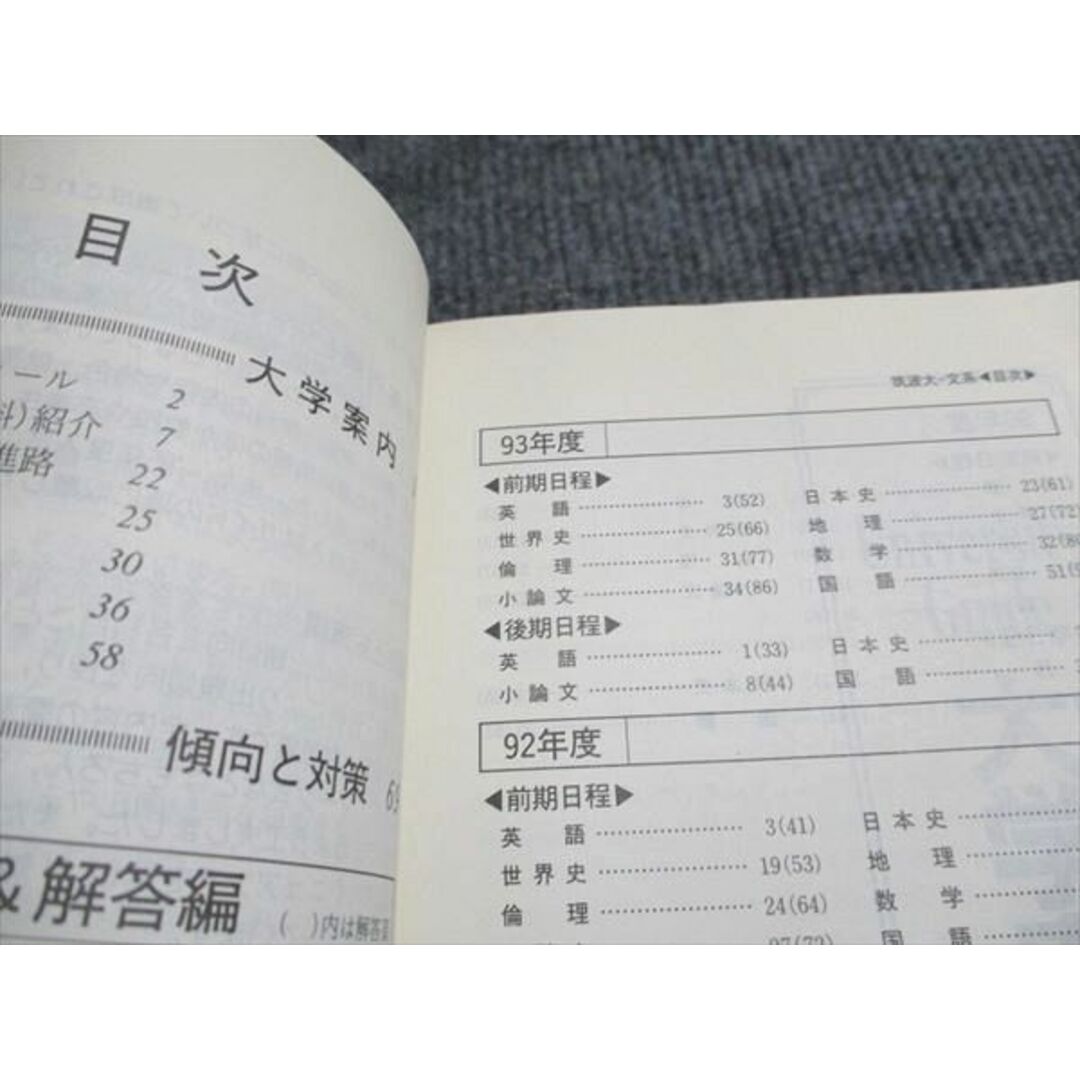 目次
大学案内
ール 2
科)紹介 7
進路 22
25
30
36
58
傾向と対策
&解答編 ( )内は解答
筑波大-文系◀目次▶
93年度
◀前期日程▶
英語 3(52) 日本史 23(61)
世界史 25(66) 地理 27(72)
倫理 31(77) 数学 32(
小論文 34(86) 国語 51(
◀後期日程▶
英語 1(33) 日本史
小論文 8(44) 国語
92年度
◀前期日程▶
英語 3(41) 日本史
世界史 19(53) 地理
倫理 24(64) 数学
国語